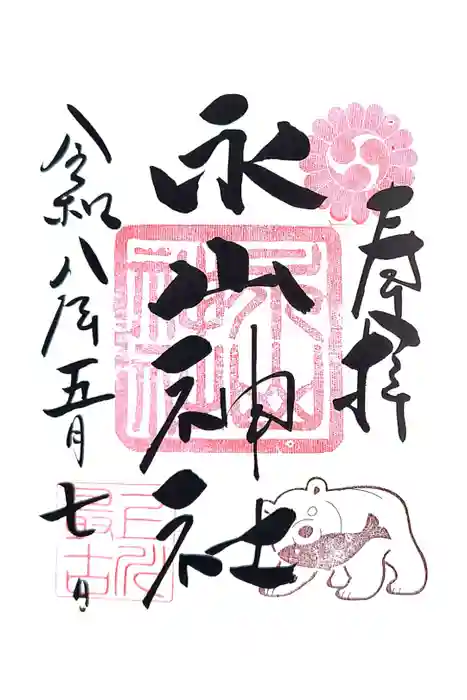 奉拝
永山神社
令和八年五月七日